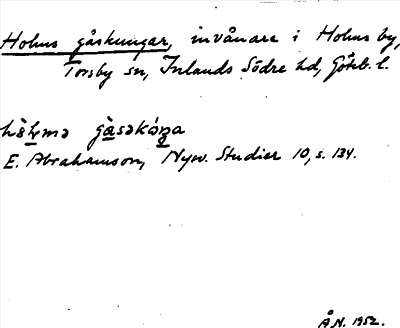 Holms gåskungar, invånare i Holms by,
Torsby sn, Inlands Södre hd, Göteb. l.
gåsəkóŋa
E. Abrahamson, Nysv. Studier 10, s. 134.
Å.N. 1952.